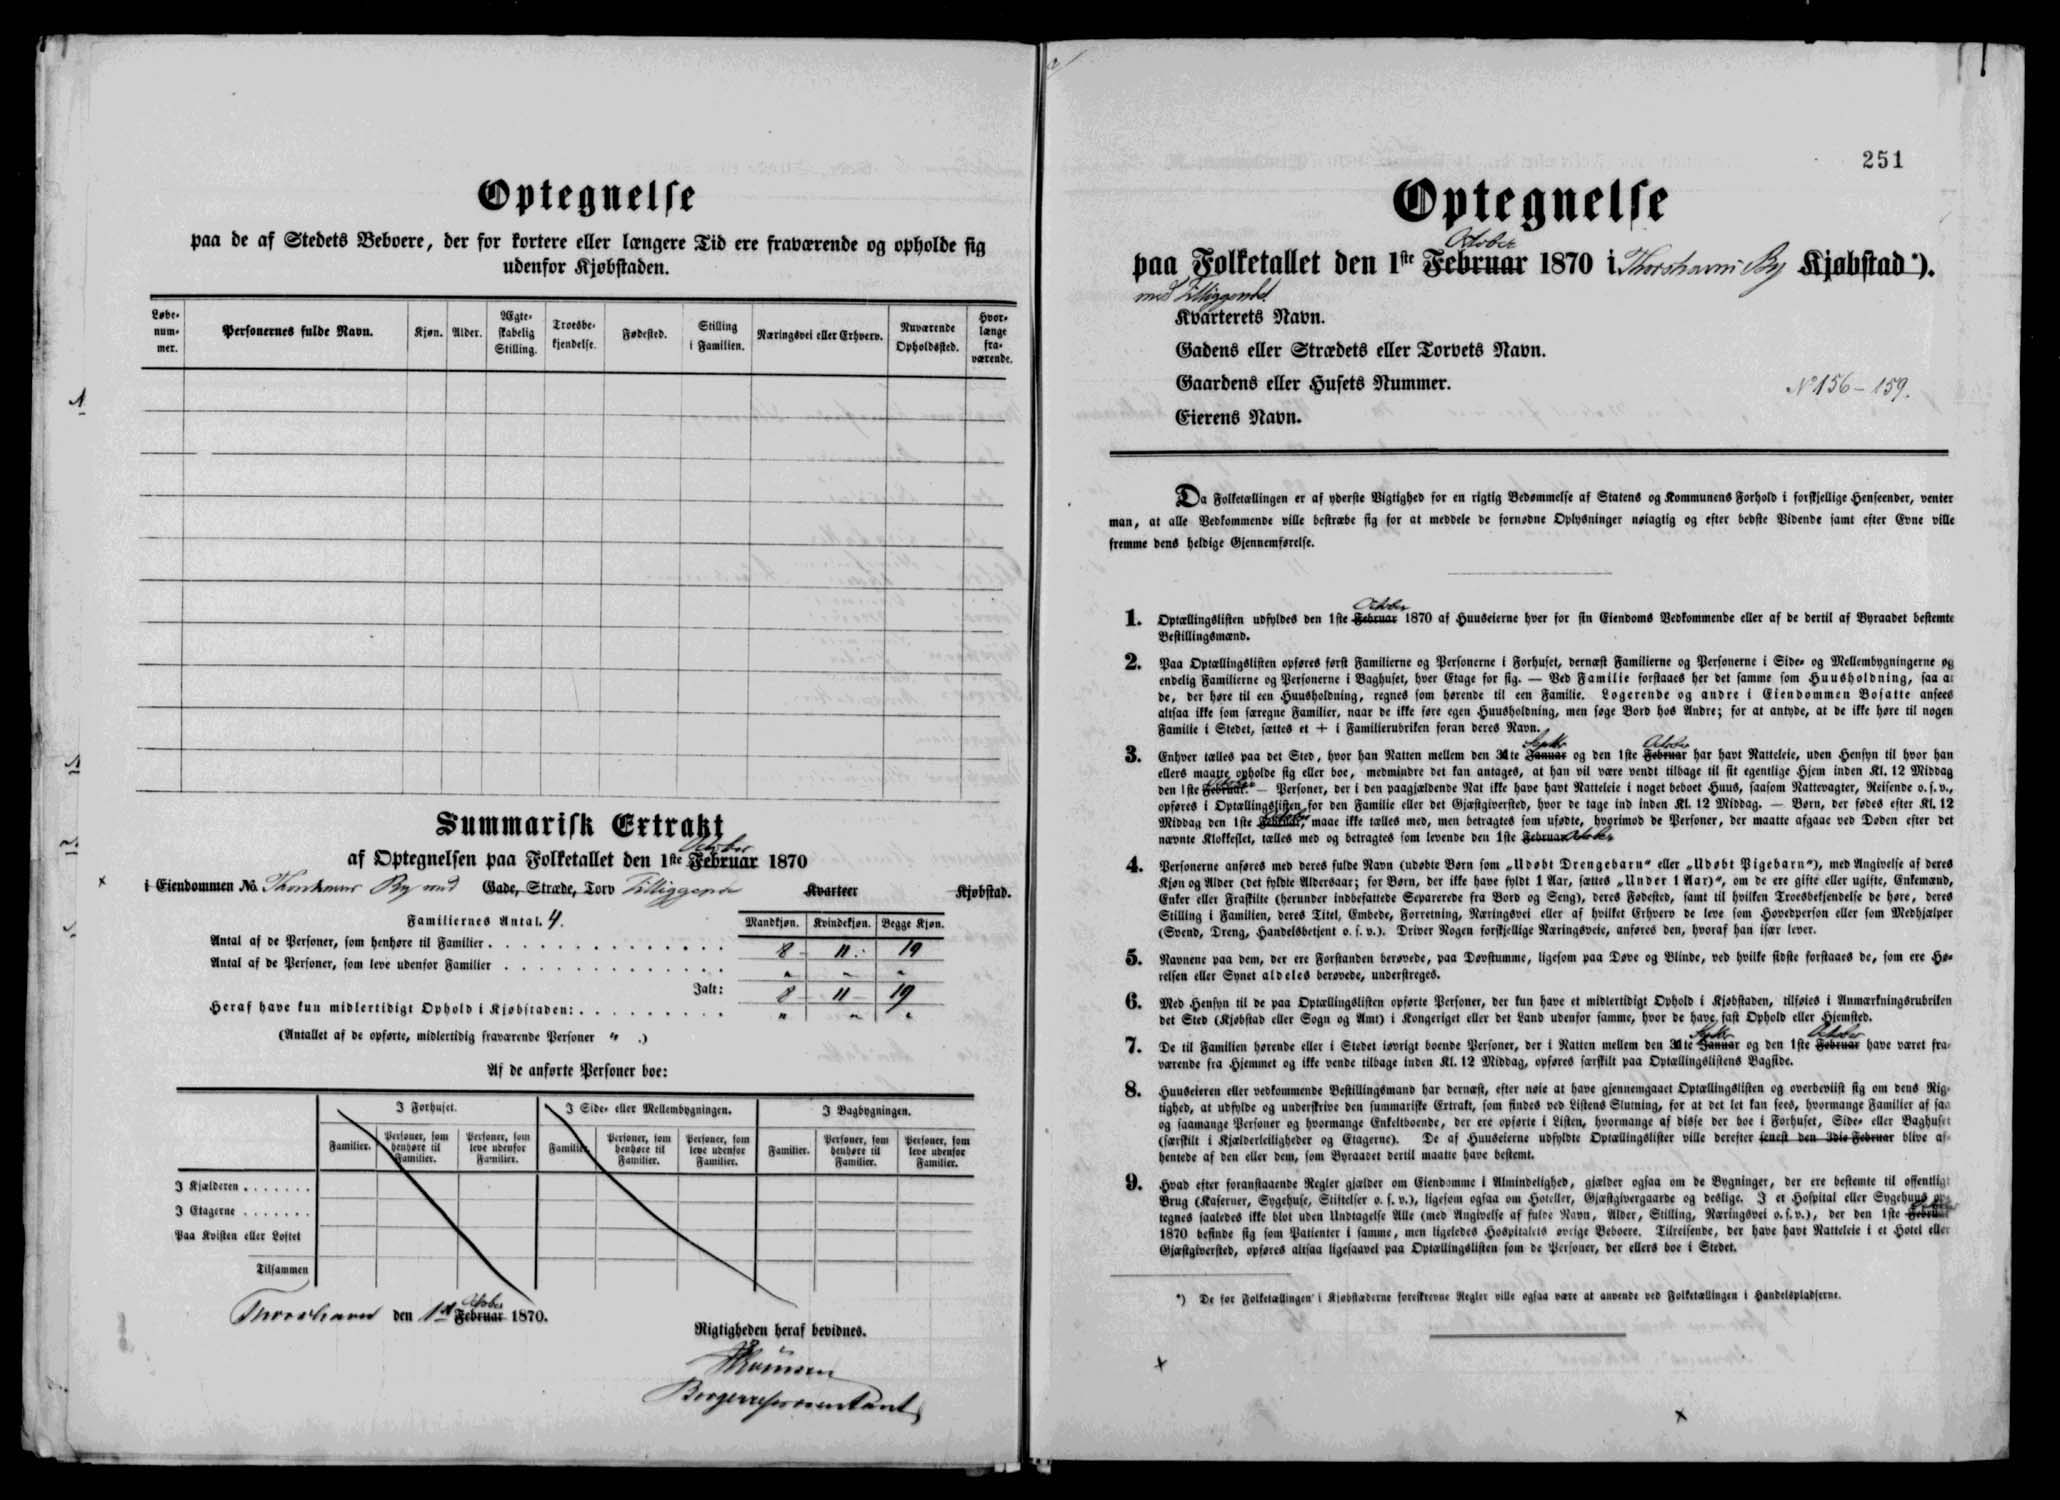 Optegnelse
paa de af Stedets Beboere, der for kortere eller længere Tid ere fraværende og opholde sig
udenfor Kjøbstaden.
Løbe-
num-
mer.
Personernes fulde Navn.
Kjøn.
Alder.
Ægte-
skabelig
Stilling.
Troesbe-
kjendelse.
Fødested.
Stilling
i Familien.
Næringsvei eller Erhverv.
Nuværende
Opholdssted.
Hvor-
længe
fra-
værende.
Summarisk Extrakt
October
af Optegnelsen paa Folketallet den 1ste Februar 1870
i Eiendommen No. Thorshavns By med Gade, Stræde, Torv Tilliggende Kvarteer Kjøbstad.
Familiernes Antal. 4.
Mandkjøn. Kvindekjøn. Begge Kjøn.
Antal af de Personer, som henhøre til Familier . . . 8 11 19
Antal af de Personer, som leve udenfor Familier . . . " " "
Ialt: 8 11 19
Heraf have kun midlertidigt Ophold i Kjøbstaden: . . . " " "
(Antallet af de opførte, midlertidig fraværende Personer " .)
Af de anførte Personer boe:
I Forhuset. I Side- eller Mellembygningen. I Bagbygningen.
Familier. Personer, som henhøre til Familier. Personer, som leve udenfor Familier. Familier. Personer, som henhøre til Familier. Personer, som leve udenfor Familier. Familier. Personer, som henhøre til Familier. Personer, som leve udenfor Familier.
I Kjælderen . . . . . . .
I Etagerne . . . . . . .
Paa Kvisten eller Loftet
Tilsammen
October
Thorshavn den 1st Februar 1870.
Rigtigheden heraf bevidnes.
Borgerrepræsentant
251
Optegnelse
October
paa Folketallet den 1ste Februar 1870 i Thorshavns By Kjøbstad*).
med Tilliggende
Kvarterets Navn.
Gadens eller Strædets eller Torvets Navn.
Gaardens eller Husets Nummer. No 156 - 159.
Eierens Navn.
Da Folketællingen er af yderste Vigtighed for en rigtig Bedømmelse af Statens og Kommunens Forhold i forskjellige Henseender, venter
man, at alle Vedkommende ville bestræbe sig for at meddele de fornødne Oplysninger nøiagtig og efter bedste Vidende samt efter Evne ville
fremme dens heldige Gjennemførelse.
October
1. Optællingslisten udfyldes den 1ste Februar 1870 af Huuseierne hver for sin Eiendoms Vedkommende eller af de dertil af Byraadet bestemte
Bestillingsmænd.
2. Paa Optællingslisten opføres først Familierne og Personerne i Forhuset, dernæst Familierne og Personerne i Side- og Mellembygningerne og
endelig Familierne og Personerne i Baghuset, hver Etage for sig. — Ved Familie forstaaes her det samme som Huusholdning, saa at
de, der høre til een Huusholdning, regnes som hørende til een Familie. Logerende og andre i Eiendommen Bosatte ansees
altsaa ikke som særegne Familier, naar de ikke føre egen Huusholdning, men søge Bord hos Andre; for at antyde, at de ikke høre til nogen
Familie i Stedet, sættes et + i Familierubriken foran deres Navn.
Septbr October
3. Enhver tælles paa det Sted, hvor han Natten mellem den 31te Januar og den 1ste Februar har havt Natteleie, uden Hensyn til hvor han
ellers maatte opholde sig eller boe, medmindre det kan antages, at han vil være vendt tilbage til sit egentlige Hjem inden Kl. 12 Middag
den 1ste Februar. — Personer, der i den paagjældende Nat ikke have havt Natteleie i noget beboet Huus, saasom Nattevagter, Reisende o. s. v.,
opføres i Optællingslisten for den Familie eller det Gjæstgiversted, hvor de tage ind inden Kl. 12 Middag. — Børn, der fødes efter Kl. 12
Middag den 1ste Februar, maae ikke tælles med, men betragtes som ufødte, hvorimod de Personer, der maatte afgaae ved Døden efter det
nævnte Klokkeslet, tælles med og betragtes som levende den 1ste Februar October
4. Personerne anføres med deres fulde Navn (udøbte Børn som „Udøbt Drengebarn“ eller „Udøbt Pigebarn“), med Angivelse af deres
Kjøn og Alder (det fyldte Aldersaar; for Børn, der ikke have fyldt 1 Aar, sættes „Under 1 Aar)“, om de ere gifte eller ugifte, Enkemænd,
Enker eller Fraskilte (herunder indbefattede Separerede fra Bord og Seng), deres Fødested, samt til hvilken Troesbekjendelse de høre, deres
Stilling i Familien, deres Titel, Embede, Forretning, Næringsvei eller af hvilket Erhverv de leve som Hovedperson eller som Medhjælper
(Svend, Dreng, Handelsbetjent o. s. v.). Driver Nogen forskjellige Næringsveie, anføres den, hvoraf han især lever.
5. Navnene paa dem, der ere Forstanden berøvede, paa Døvstumme, ligesom paa Døve og Blinde, ved hvilke sidste forstaaes de, som ere Hø-
relsen eller Synet aldeles berøvede, understreges.
6. Med Hensyn til de paa Optællingslisten opførte Personer, der kun have et midlertidigt Ophold i Kjøbstaden, tilføies i Anmærkningsrubriken
det Sted (Kjøbstad eller Sogn og Amt) i Kongeriget eller det Land udenfor samme, hvor de have fast Ophold eller Hjemsted.
Septbr October
7. De til Familien hørende eller i Stedet iøvrigt boende Personer, der i Natten mellem den 31te Januar og den 1ste Februar have været fra-
værende fra Hjemmet og ikke vende tilbage inden Kl. 12 Middag, opføres særskilt paa Optællingslistens Bagside.
8. Huuseieren eller vedkommende Bestillingsmand har dernæst, efter nøie at have gjennemgaaet Optællingslisten og overbeviist sig om dens Rig-
tighed, at udfylde og underskrive den summariske Extrakt, som findes ved Listens Slutning, for at det let kan sees, hvormange Familier af saa
og saamange Personer og hvormange Enkeltboende, der ere opførte i Listen, hvormange af disse der boe i Forhuset, Side- eller Baghuset
(særskilt i Kjælderleiligheder og Etagerne). De af Huuseierne udfyldte Optællingslister ville derefter senest den 3die Februar blive af-
hentede af den eller dem, som Byraadet dertil maatte have bestemt.
9. Hvad efter foranstaaende Regler gjælder om Eiendomme i Almindelighed, gjælder ogsaa om de Bygninger, der ere bestemte til offentligt
Brug (Kaserner, Sygehuse, Stiftelser o. s. v.), ligesom ogsaa om Hoteller, Gjæstgivergaarde og deslige. I et Hospital eller Sygehuus op-
tegnes saaledes ikke blot uden Undtagelse Alle (med Angivelse af fulde Navn, Alder, Stilling, Næringsvei o. s. v.), der den 1ste Februar
1870 befinde sig som Patienter i samme, men ligeledes Hospitalets øvrige Beboere. Tilreisende, der have havt Natteleie i et Hotel eller
Gjæstgiversted, opføres altsaa ligesaavel paa Optællingslisten som de Personer, der ellers boe i Stedet.
*) De for Folketællingen i Kjøbstæderne foreskrevne Regler ville ogsaa være at anvende ved Folketællingen i Handelspladserne.